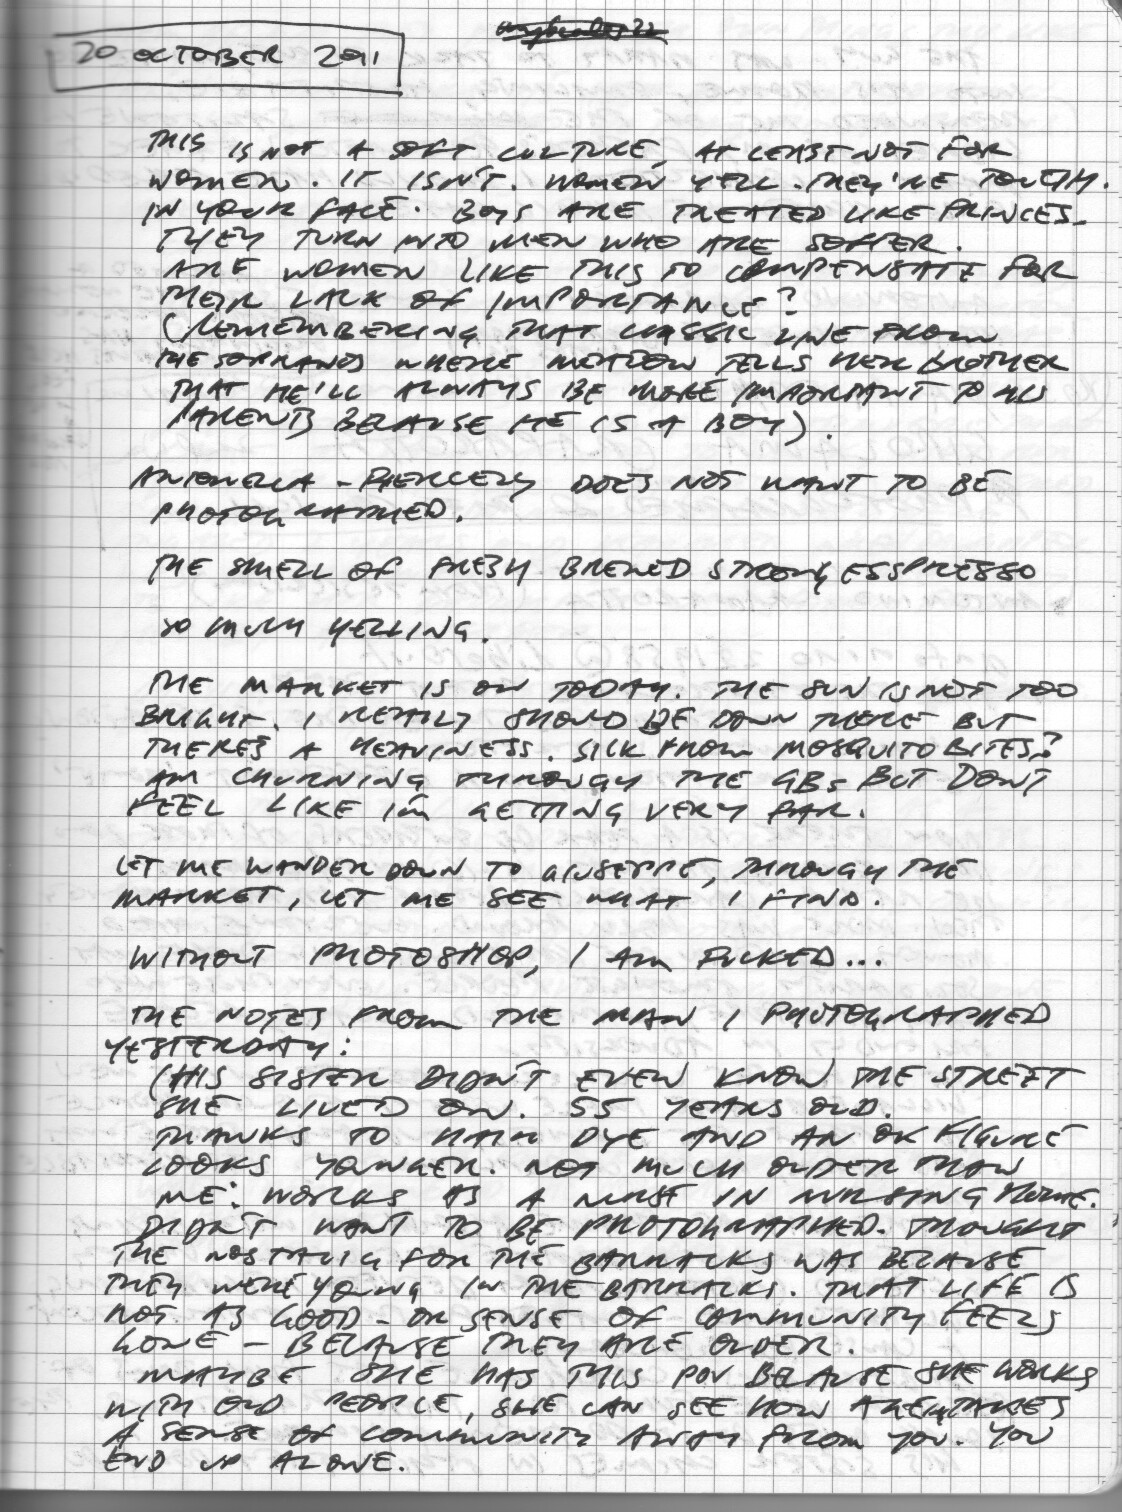 20 OCTOBER 2011
THIS IS NOT A SOFT CULTURE, AT LEAST NOT FOR
WOMEN. IT ISN'T. WOMEN YELL. THEY'RE TOUGH.
IN YOUR FACE. BOYS ARE TREATED LIKE PRINCES.
THEY TURN INTO MEN WHO ARE SOFTER.
ARE WOMEN LIKE THIS TO COMPENSATE FOR
THEIR LACK OF IMPORTANCE?
(REMEMBERING THAT CLASSIC LINE FROM
THE SOPRANOS WHERE MEADOW TELLS HER BROTHER
THAT HE'LL ALWAYS BE MORE IMPORTANT TO HIS
PARENTS BECAUSE HE IS A BOY).
ANTONELLA - FIERCELY DOES NOT WANT TO BE
PHOTOGRAPHED.
THE SMELL OF FRESH BREWED STRONG ESSPRESSO
SO MUCH YELLING.
THE MARKET IS ON TODAY. THE SUN IS NOT TOO
BRIGHT. I REALLY SHOULD BE DOWN THERE BUT
THERE'S A HEAVINESS. SICK FROM MOSQUITO BITES?
AM CHURNING THROUGH THE GBs BUT DON'T
FEEL LIKE I'm GETTING VERY FAR.
LET ME WANDER DOWN TO GIUSEPPE, THROUGH THE
MARKET, LET ME SEE WHAT I FIND.
WITHOUT PHOTOSHOP, I AM FUCKED...
THE NOTES FROM THE MAN I PHOTOGRAPHED
YESTERDAY:
(HIS SISTER DIDN'T EVEN KNOW THE STREET
SHE LIVED ON. 55 YEARS OLD.
THANKS TO HAIR DYE AND AN OK FIGURE
LOOKS YOUNGER. NOT MUCH OLDER THAN
ME. WORKS AS A NURSE IN NURSING HOME.
DIDN'T WANT TO BE PHOTOGRAPHED. THOUGHT
THE NOSTALIG FOR THE BARRACKS WAS BECAUSE
THEY WERE YOUNG IN THE BARRACKS. THAT LIFE IS
NOT AS GOOD - OR SENSE OF COMMUNITY FEELS
GONE - BECAUSE THEY ARE OLDER.
MAYBE SHE HAS THIS POV BECAUSE SHE WORKS
WITH OLD PEOPLE, SHE CAN SEE HOW AGE TAKES
A SENSE OF COMMUNITY AWAY FROM YOU. YOU
END UP ALONE.